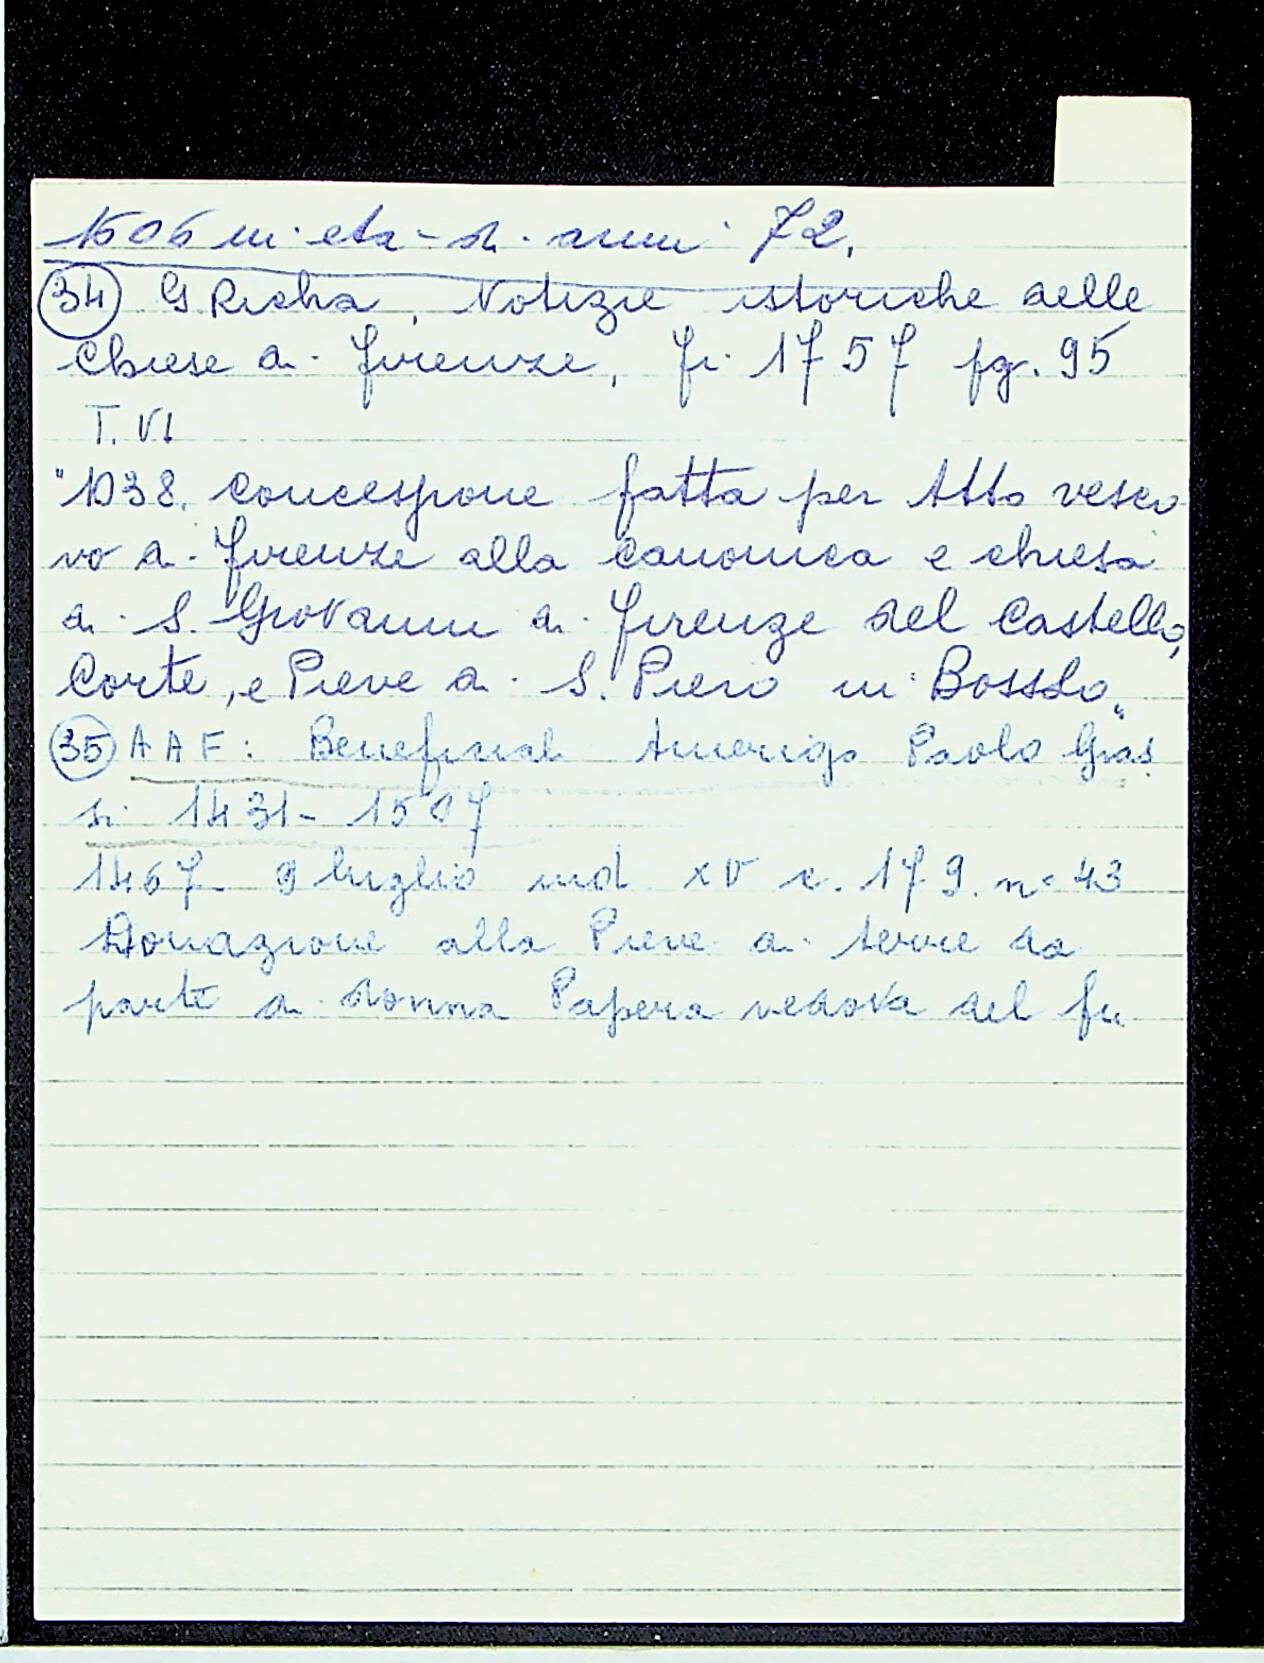 1506 in età di anni 72.
34 G. Richa, Notizie istoriche delle
Chiese di Firenze, Fi 1757 pg. 95
T. VI
"1038. Concessione fatta per Atto vesco
vo di Firenze alla Canonica e chiesa
di S. Giovanni di Firenze del Castello,
Corte, e Pieve di S. Piero in Bossolo"
35 AAF: Beneficiali Amerigo Paolo Gras
si 1431-1507
1467 9 luglio ind XV c. 179. n° 43
Donazione alla Pieve di terre da
parte di donna Papera vedova del fu